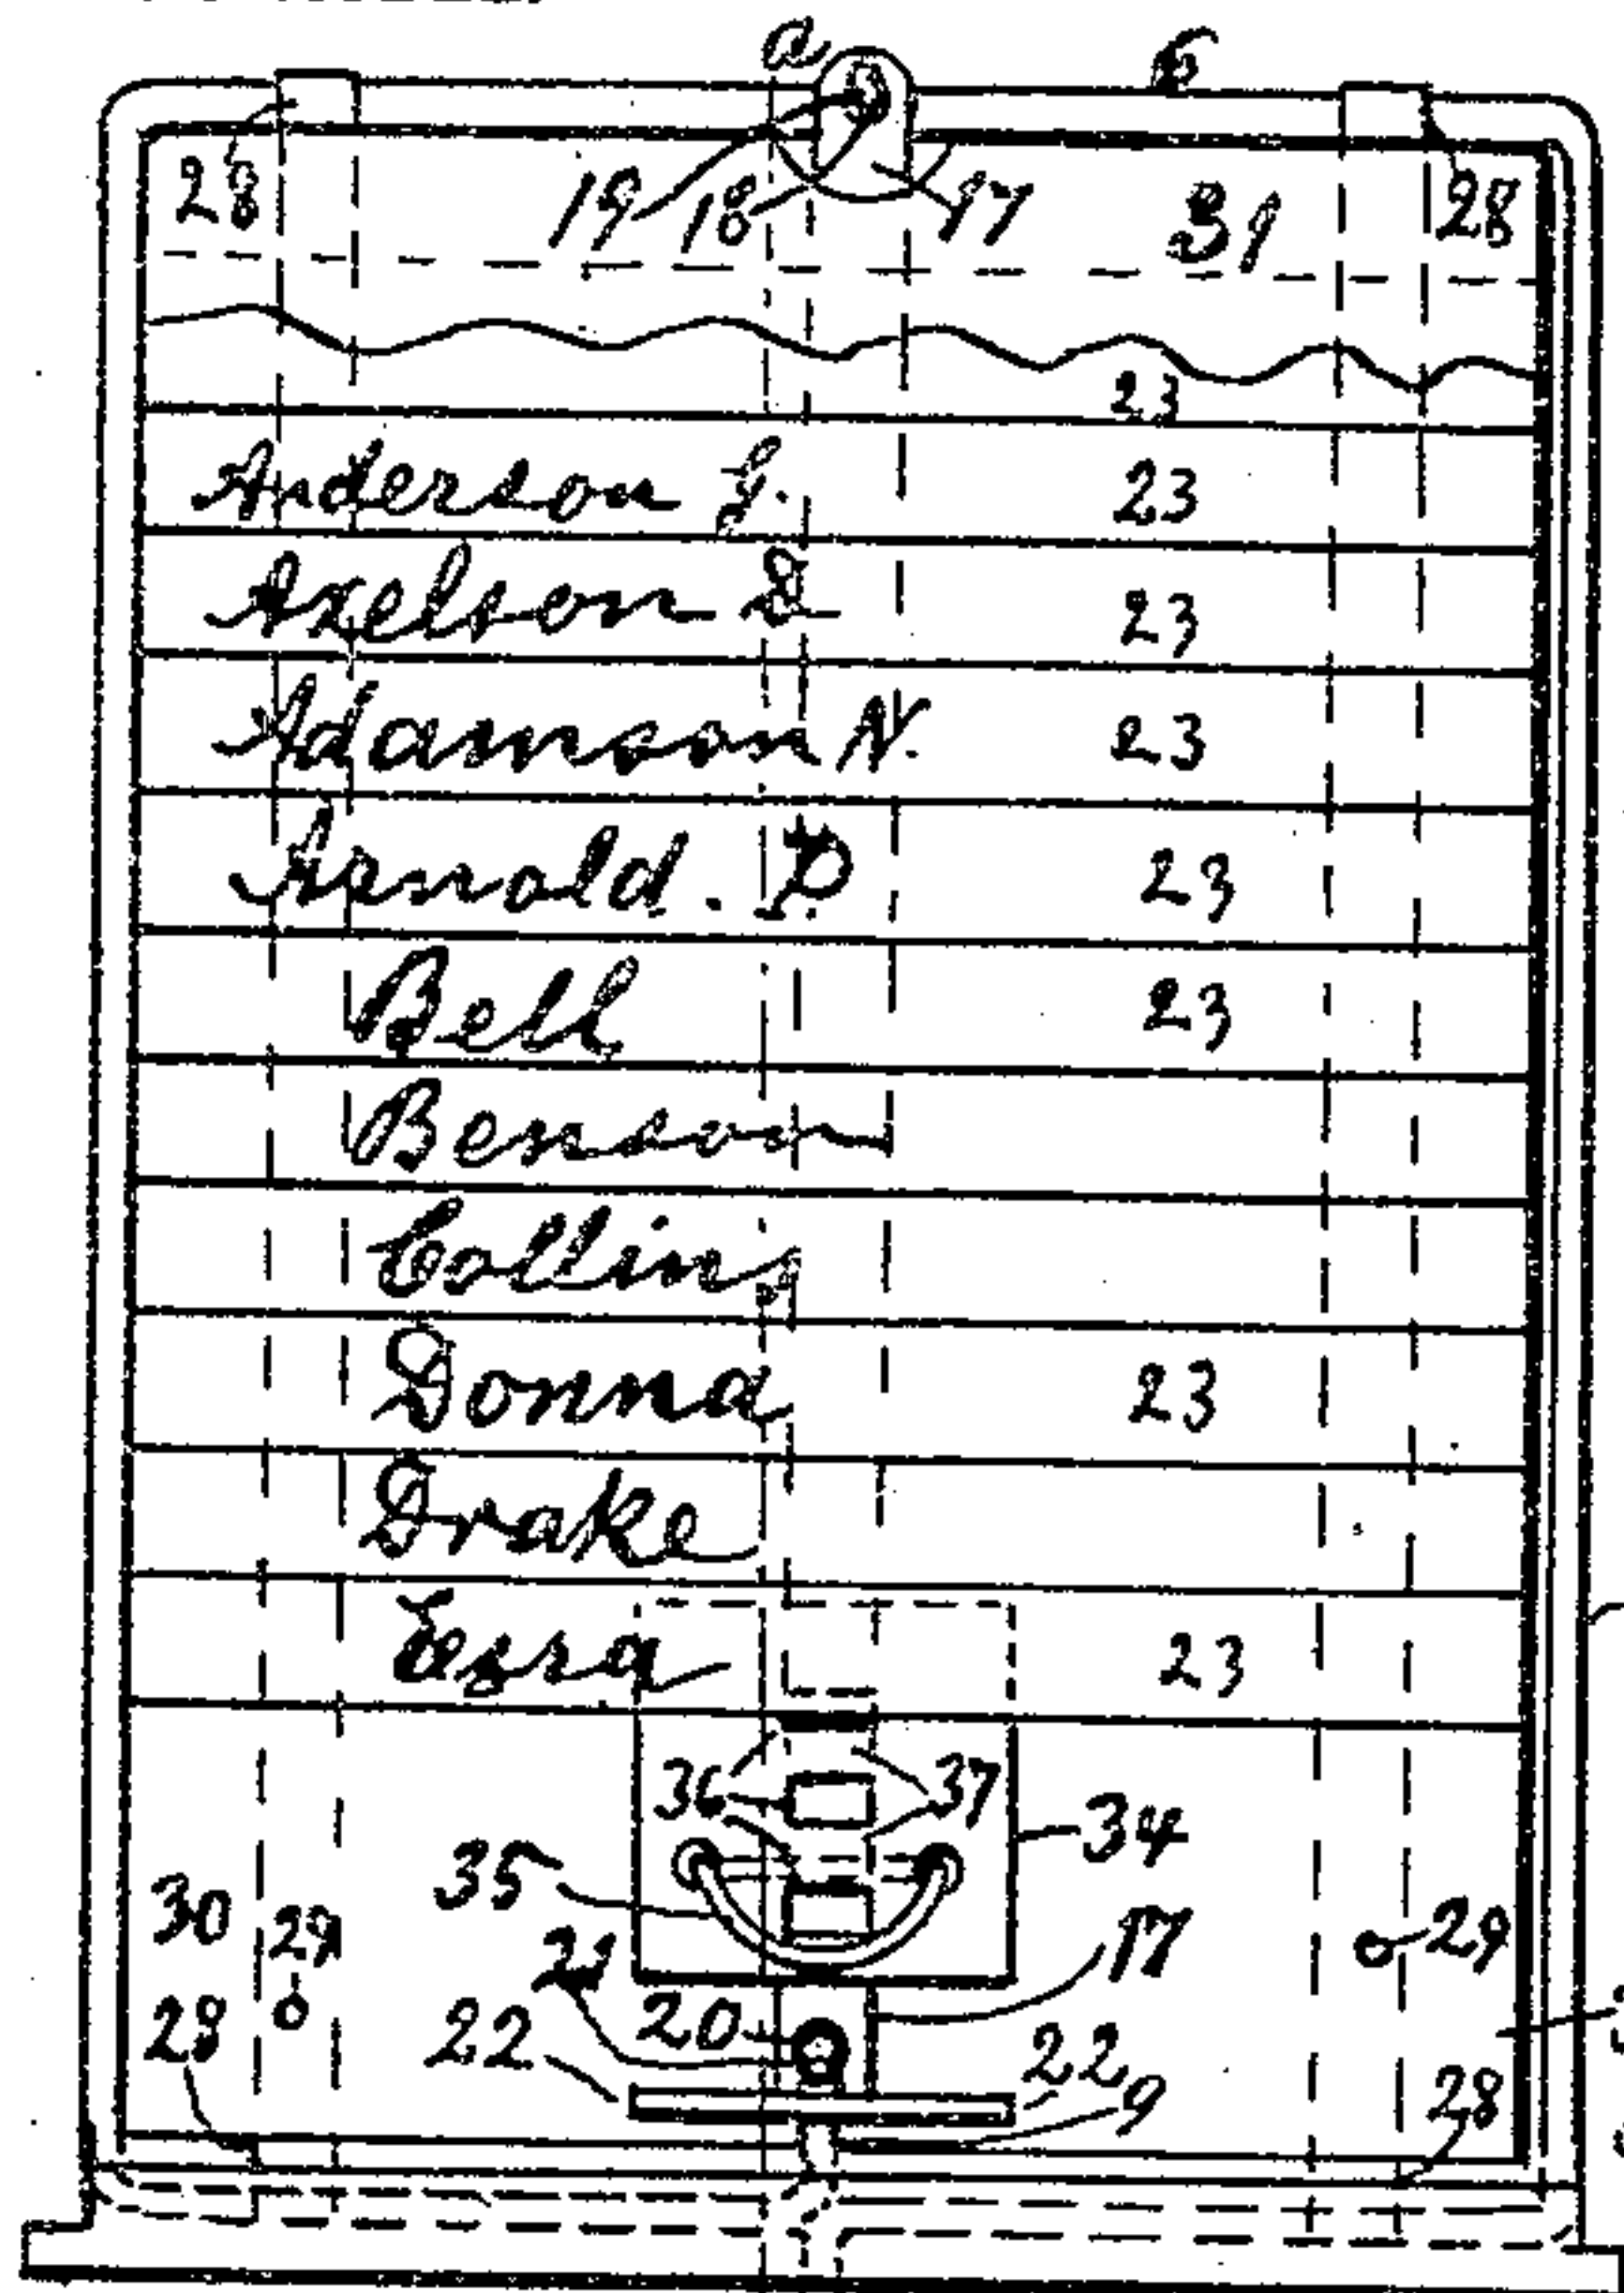 a 6
28 19 18 17 31 28
23
Anderson G. 23
Axelson D 23
Adamson N. 23
Arnold. P 23
Bell 23
Benson
Collins
Donna 23
Drake
Ezra 23
36 37
34
35
30 29 17 29
21
28 22 20 22
9 28